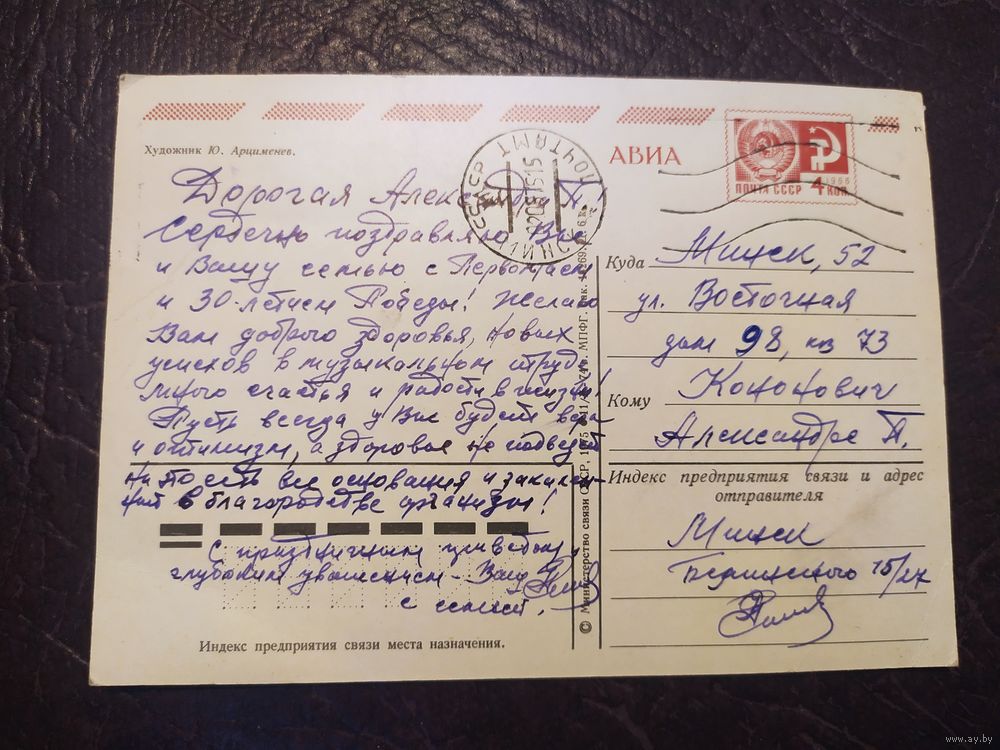 Художник Ю. Арцименев.
АВИА
ПОЧТА СССР 4 КОП.
1966
ПОЧТАМТ
Дорогая Александра П.!
Сердечно поздравляю Вас
и Вашу семью с Первомаем
и 30-летием Победы! Желаю
Вам доброго здоровья, новых
успехов в музыкальном труде
много счастья и радости в жизни!
Пусть всегда у Вас будет вера
и оптимизм, а здоровье не подведет
на то есть все основания и
в благородстве !
С праздничным приветом,
глубоким уважением - Ваш
с семьей.
Индекс предприятия связи места назначения.
© Министерство связи СССР. 1975 МПФГ.
Куда Минск, 52
ул. Восточная
дом 98, кв 73
Кому Кононович
Александре П.
Индекс предприятия связи и адрес
отправителя
Минск
15/27
www.ay.by